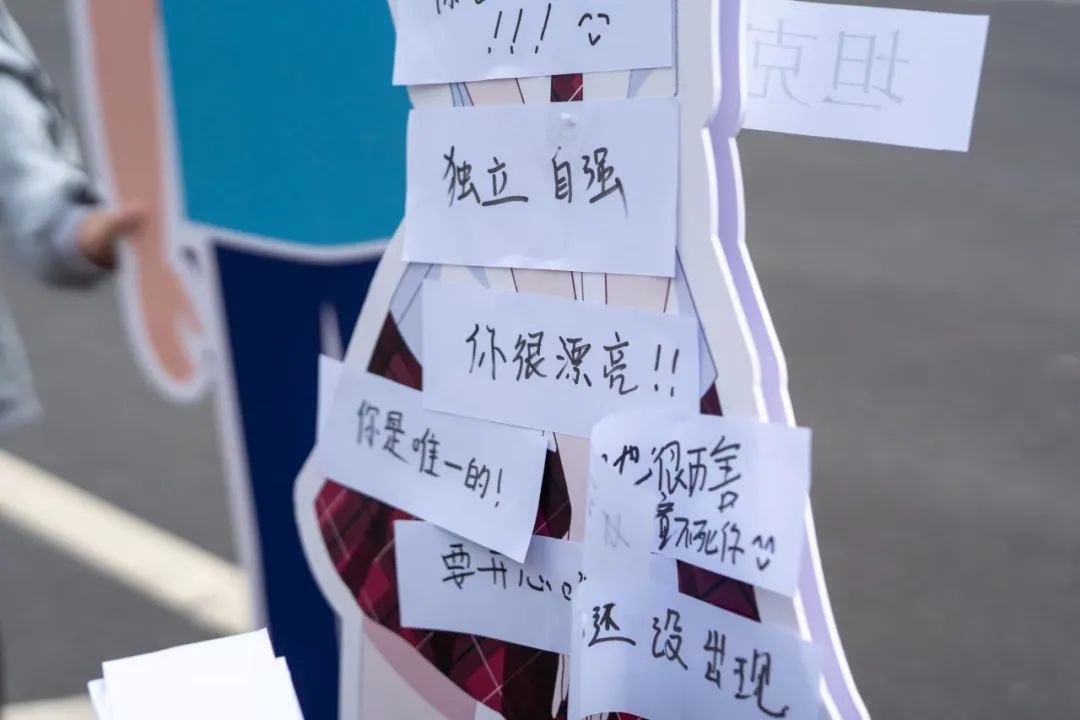 !!!
坦克
独立 自强
你很漂亮!!
你是唯一的!
也很厉害
不死你
要开心
还没出现